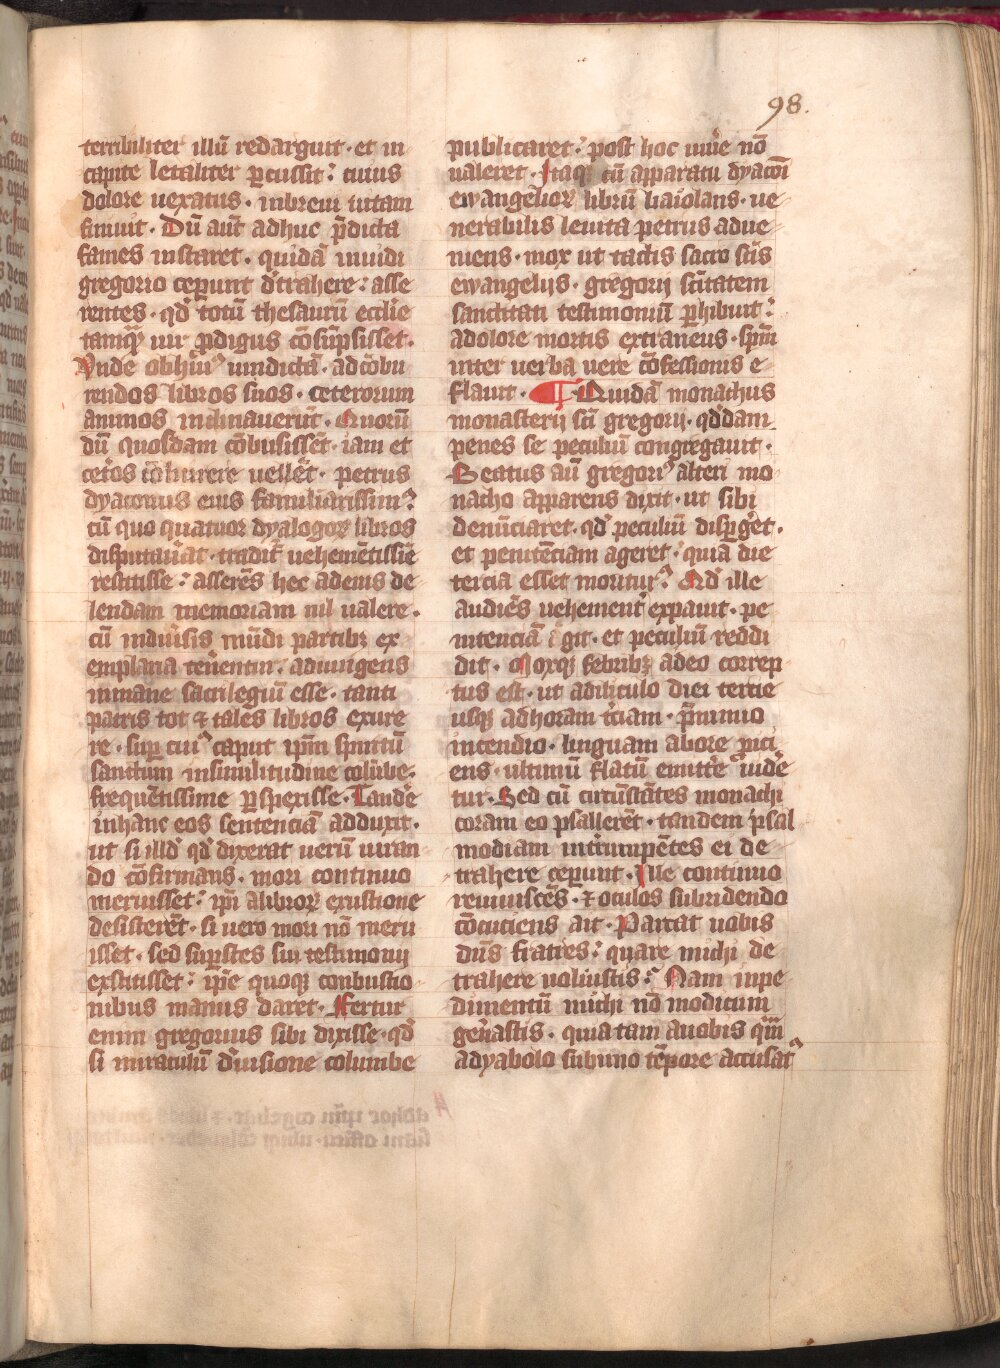 98.
terribiliter illū redarguit · et in
capite letaliter ꝑcussit : cuius
dolore uexatus · inbreui uitam
finiuit · Dū aūt adhuc p̄dicta
fames instaret · quidā inuidi
gregorio ceperunt d̓trahere : asse
rentes · qd̓ totū thesaurū ecclīe
tamqȝ uir ꝓdigus cōsūpsisset ·
Unde obhui᷒ uindictā · adcōbu
rendos libros suos · ceterorum
animos inclinauerūt · Quorū
dū quosdam cōbusissēt · iam et
cet̓os cōburere uellēt · petrus
dyaconus eius familiarissim᷒ :
cū quo quatuor dyalogoꝝ libros
disputau̓at · tradit᷑ uehemētissīe
restitisse : asserēs hec adeius de
lendam memoriam nil ualere ·
cū indiu̓sis mūdi partibꝫ ex
emplaria tenent᷑ · adiungens
inmane sacrilegiū esse · tanti
patris tot ⁊ tales libros exure
re · suꝑ cui᷒ caput ip̄m spiritū
sanctum insimilitudine colūbe ·
frequētissime ꝑspexisse · Tandē
inhanc eos sentenciā adduxit ·
ut si illd̓ qd̓ dixerat uerū iuran
do cōfirmans · mori continuo
meruisset : ip̄i alibroꝝ exustione
desisterēt · si uero mori nō meru
isset · sed suꝑstes sui testimonij
exstitisset : ip̄e quoqȝ conbustio
nibus manus daret · Fertur
enim gregorius sibi dixisse · qd̓
si miraculū d̓uisione columbe
publicaret : post hoc uiu̓e nō
ualeret · Itaqȝ cū apparatu dyaconi
ewangelioꝝ librū baiolans · ue
nerabilis leuita petrus adue
niens · mox ut tactis sacro sc̄is
ewangelijs · gregorij sc̄itatem
sanctitati testimoniū ꝑhibuit :
adolore mortis extraneus · sp̄m
inter uerba uere cōfessionis e
flauit · ¶ Quidā monachus
monasterij sc̄i gregorij · qd̓dam
penes se peculiū congregauit ·
Beatus aūt gregori᷒ alteri mo
nacho apparens dixit · ut sibi
denūciaret · qd̓ peculiū disꝑget ·
et penitēciam ageret · quia die
tercia esset moritur᷒ Qd̓ ille
audiēs uehement̓ expauit · pe
nitenciā egit · et peculiū reddi
dit · Moxqȝ febribꝫ adeo correp
tus est · ut adiliculo diei tercie
usqȝ adhoram t̓ciam · p̄nimio
incendio · linguam abore ꝓici
ens · ultimū flatū emitte᷑ uidē
tur · Sed cū circūstātes monachi
coram eo psallerēt · tandem psal
modiam int̓rumpētes ei de
trahere ceperunt · Ille continuo
reuiuiscēs · ⁊ oculos subridendo
cōcuciens ait · Parcat uobis
dn̄s fratres : quare michi de
trahere uoluistis : Nam inpe
dimentū michi nō modicum
gen̓astis · quia tam auobis qm̄
adyabolo subuno tēpore accusat᷒